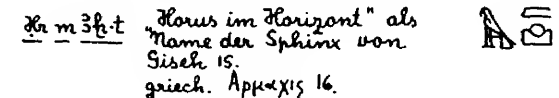 Ḥr m ꜣḫ·t „Horus im Horizont" als
Name der Sphinx von
Giseh 15.
griech. Ἁρμαχις 16.